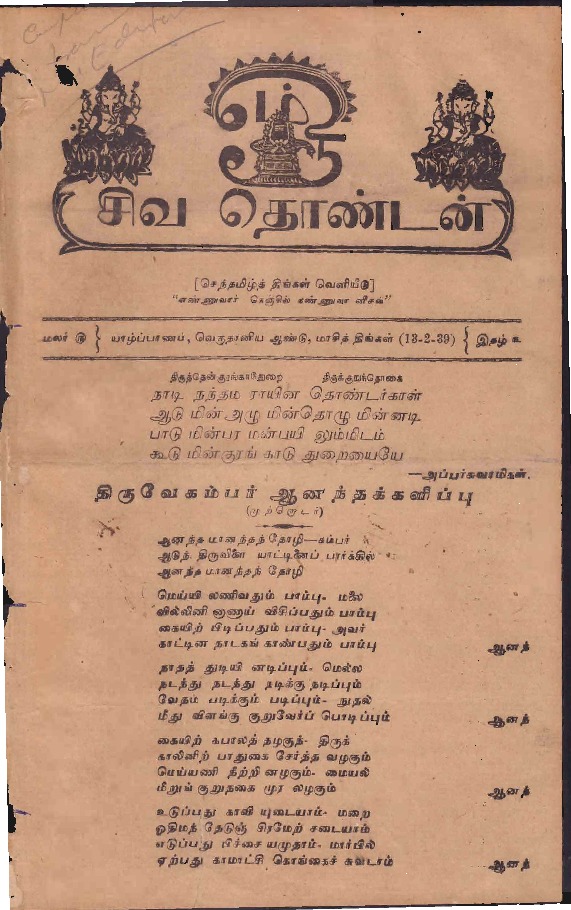 சிவ தொண்டன்
[செந்தமிழ்த் திங்கள் வெளியீடு]
மலர் ௫ } யாழ்ப்பாணம், வெகுதானிய ஆண்டு, மாசித் திங்கள் (13-2-39) { இதழ் ௨
திருத்தென்குரங்காடுதுறை திருக்குறுந்தொகை
நாடி நந்தம ராயின தொண்டர்காள்
ஆடு மின் அழு மின்தொழு மின்னடி
பாடு மின்பர மன்பயி லும்மிடம்
கூடு மின்குரங் காடு துறையையே
—அப்பர்சுவாமிகள்.
திருவேகம்பர் ஆனந்தக்களிப்பு
ஆனந்த மானந்தந் தோழி—கம்பர்
ஆடுந் திருவிளை யாட்டினைப் பார்க்கில்
ஆனந்த மானந்தந் தோழி
மெய்யி லணிவதும் பாம்பு- மலை
வில்லினி னாணாய் விசிப்பதும் பாம்பு
கையிற் பிடிப்பதும் பாம்பு- அவர்
காட்டின நாடகங் காண்பதும் பாம்பு ஆனந்
நாதத் துடியி னடிப்பும்- மெல்ல
நடந்து நடந்து நடிக்கு நடிப்பும்
வேதம் படிக்கும் படிப்பும்- நுதல்
மீது விளங்கு குறுவேர்ப் பொடிப்பும் ஆனந்
கையிற் கபாலத் தழகுந்- திருக்
காலினிற் பாதுகை சேர்த்த வழகும்
மெய்யணி நீற்றி னழகும்- மையல்
மீறுங் குறுநகை மூர லழகும் ஆனந்
உடுப்பது காவி யுடையாம்- மறை
ஓதிமந் தேடுஞ் சிரமேற் சடையாம்
எடுப்பது பிச்சை யமுதாம்- மார்பில்
ஏற்பது காமாட்சி கொங்கைச் சுவடாம் ஆனந்